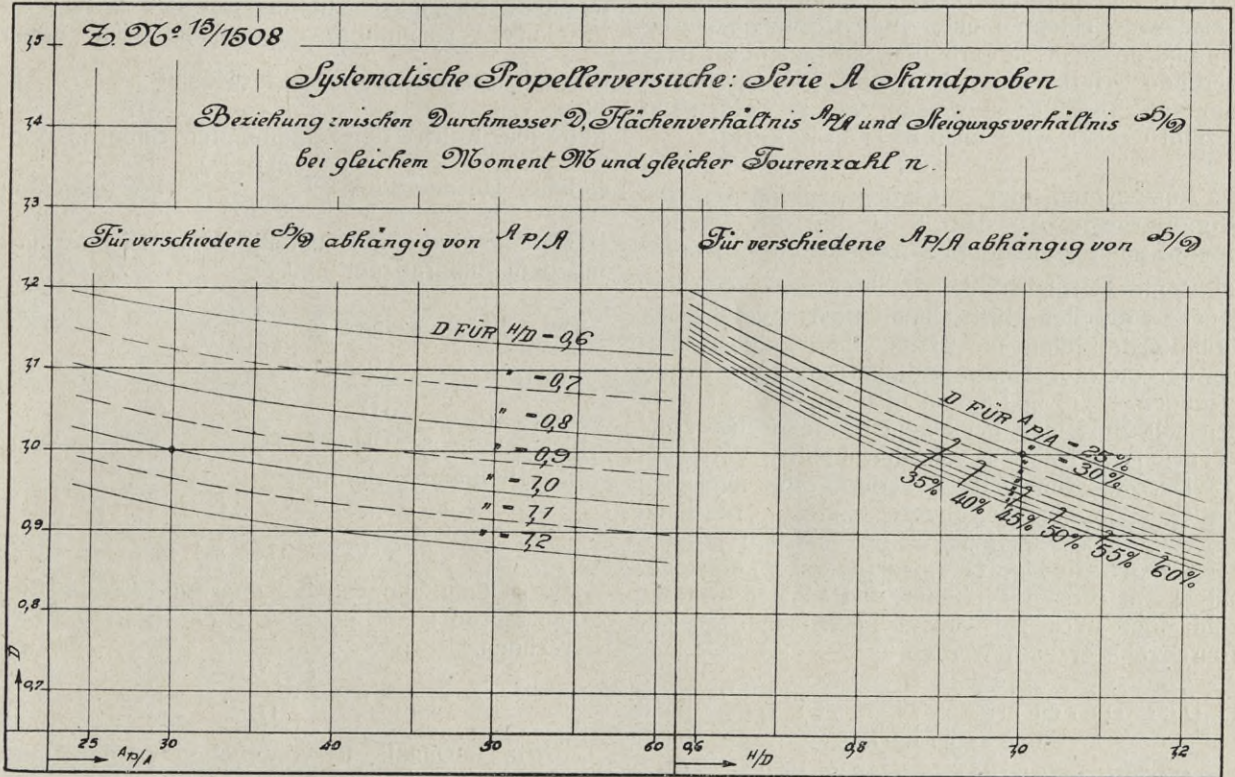 Z. Nº 15/1508
Systematische Propellerversuche: Serie A Standproben
Beziehung zwischen Durchmesser D, Flächenverhältnis AP/A und Steigungsverhältnis H/D
bei gleichem Moment M und gleicher Tourenzahl n.
Für verschiedene H/D abhängig von AP/A
Für verschiedene AP/A abhängig von H/D
1,5
1,4
1,3
1,2
1,1
1,0
0,9
0,8
0,7
D
D FÜR H/D = 0,6
" = 0,7
" = 0,8
" = 0,9
" = 1,0
" = 1,1
" = 1,2
D FÜR AP/A = 25%
" = 30%
35%
40%
45%
50%
55%
60%
25 30 40 50 60
AP/A
0,6 0,8 1,0 1,2
H/D